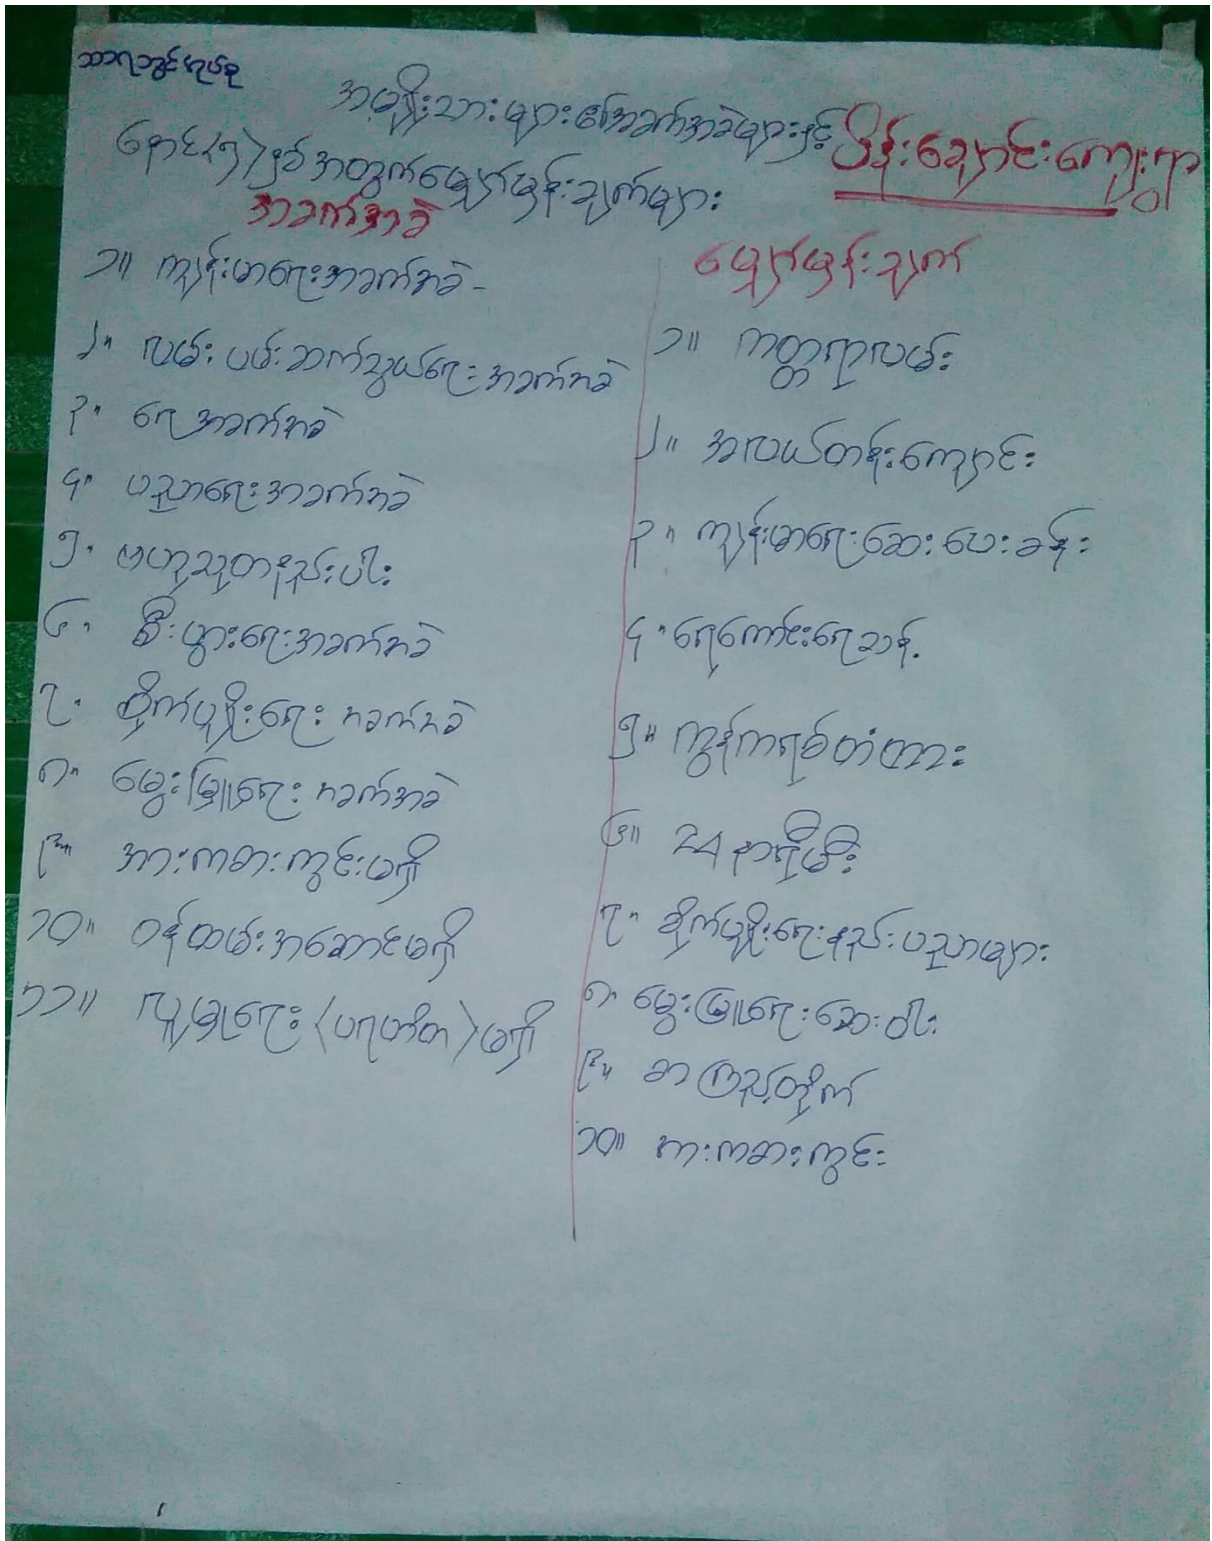 သာရဘွင်အုပ်စု
အမျိုးသားများ၏အခက်အခဲများနှင့် ပိန်းချောင်းကျေးရွာ
နောင်(၅)နှစ်အတွက်မျှော်မှန်းချက်များ
အခက်အခဲ
၁။ ကျန်းမာရေးအခက်အခဲ -
၂။ လမ်းပမ်းဆက်သွယ်ရေးအခက်အခဲ
၃။ ရေအခက်အခဲ
၄။ ပညာရေးအခက်အခဲ
၅။ ဗဟုသုတနည်းပါး
၆။ စီးပွားရေးအခက်အခဲ
၇။ စိုက်ပျိုးရေးအခက်အခဲ
၈။ မွေးမြူရေးအခက်အခဲ
၉။ အားကစားကွင်းမရှိ
၁၀။ ဝန်ထမ်းအဆောင်မရှိ
၁၁။ လူမှုရေး (ပရဟိတ) မရှိ
မျှော်မှန်းချက်
၁။ ကတ္တရာလမ်း
၂။ အလယ်တန်းကျောင်း
၃။ ကျန်းမာရေးဆေးပေးခန်း
၄။ ရေကောင်းရေသန့်
၅။ ကွန်ကရစ်တံတား
၆။ 24 နာရီမီး
၇။ စိုက်ပျိုးရေးနည်းပညာများ
၈။ မွေးမြူရေးဆေးဝါး
၉။ စာကြည့်တိုက်
၁၀။ အားကစားကွင်း